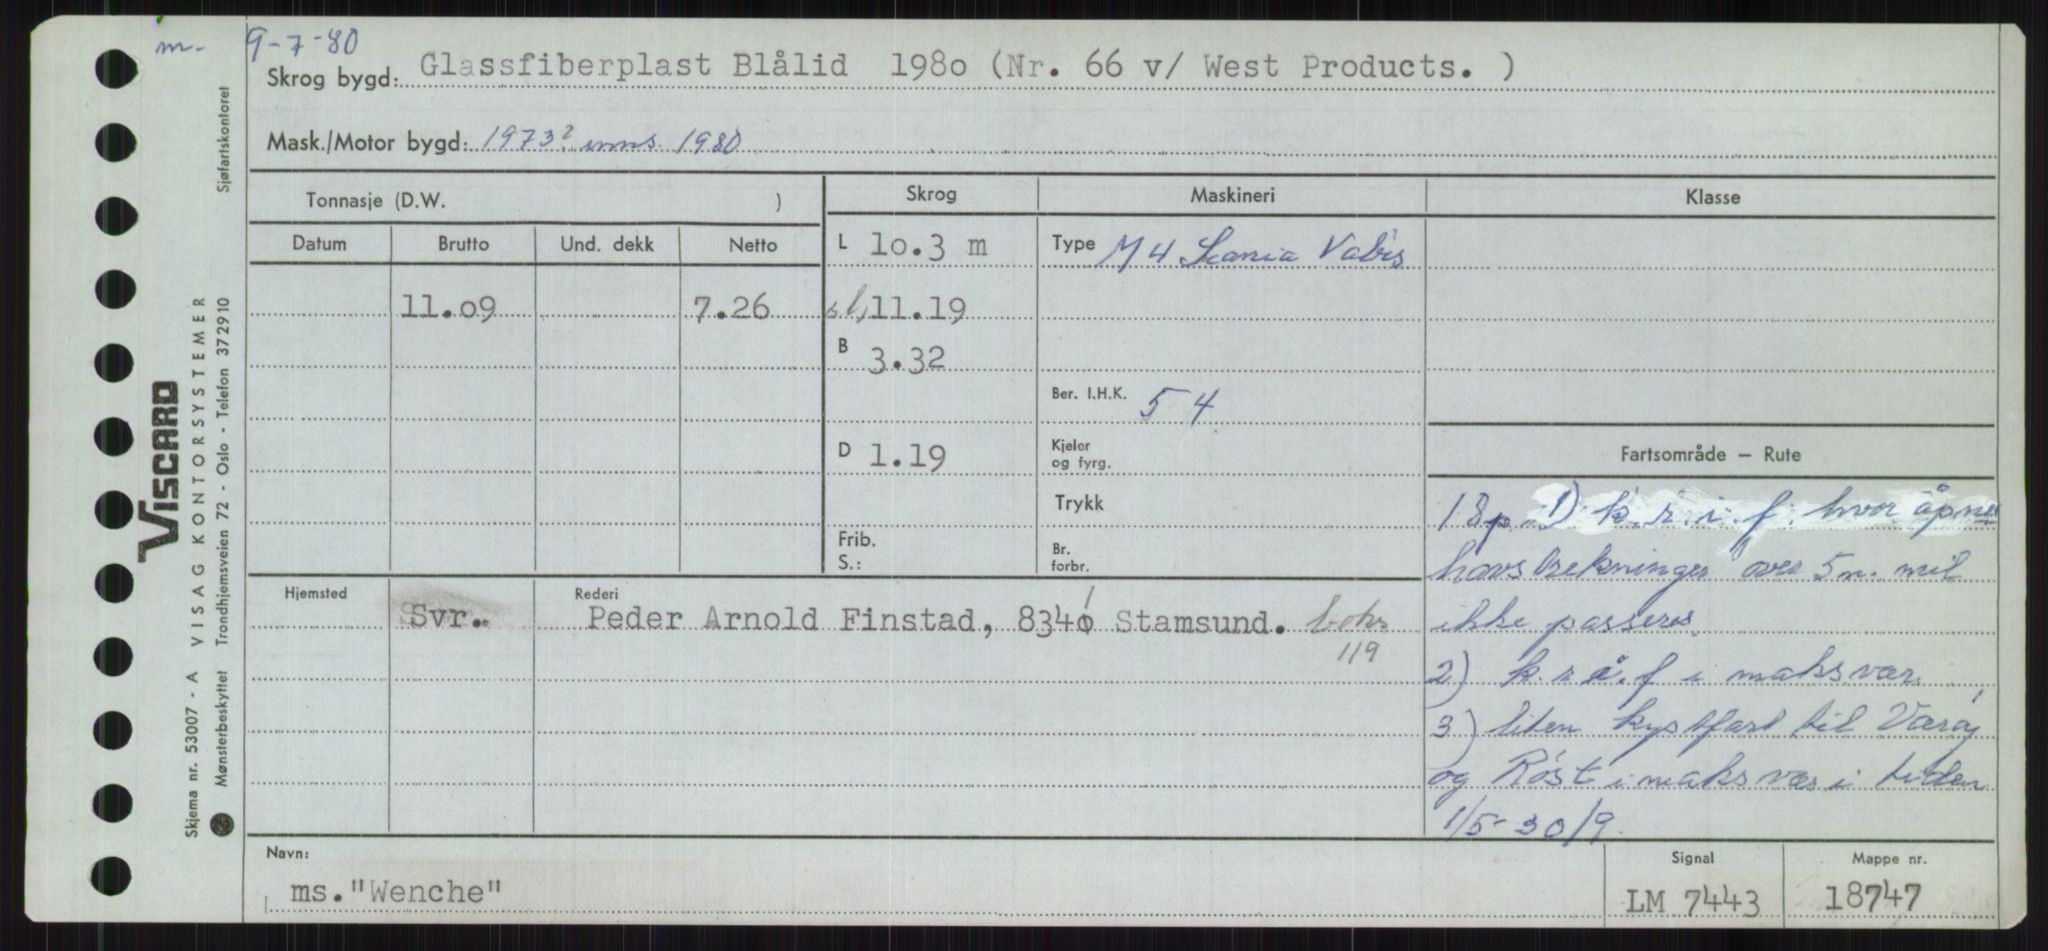 m. 9-7-80
Skrog bygd: Glassfiberplast Blålid 198o (Nr. 66 v/ West Products. )
Mask./Motor bygd: 1973? inns. 1980
Tonnasje (D.W. )
Skrog
Maskineri
Klasse
Datum
Brutto
Und. dekk
Netto
L 1o.3 m
Type M4 Scania Vabis
11.o9
7.26
s.l, 11.19
B 3.32
Ber. I.H.K. 54
D 1.19
Kjeler
og fyrg.
Trykk
Frib.
S.:
Br.
forbr.
Fartsområde – Rute
18p. 1) k.r.i.f. hvor åpne
havstrekninger over 5 n. mil
ikke passeres.
2) k.r.i.f i maksvær.
3) liten kystfart til Værøy
og Røst i maksvær i tiden
1/5-30/9.
Hjemsted
Svr.
Rederi
Peder Arnold Finstad, 8340 Stamsund. boks
119
Navn:
ms."Wenche"
Signal
LM 7443
Mappe nr.
18747
Sjøfartskontoret
VISCARD
VISAG KONTORSYSTEMER
Trondhjemsveien 72 - Oslo - Telefon 372910
Skjema nr. 53007 - A
Mønsterbeskyttet